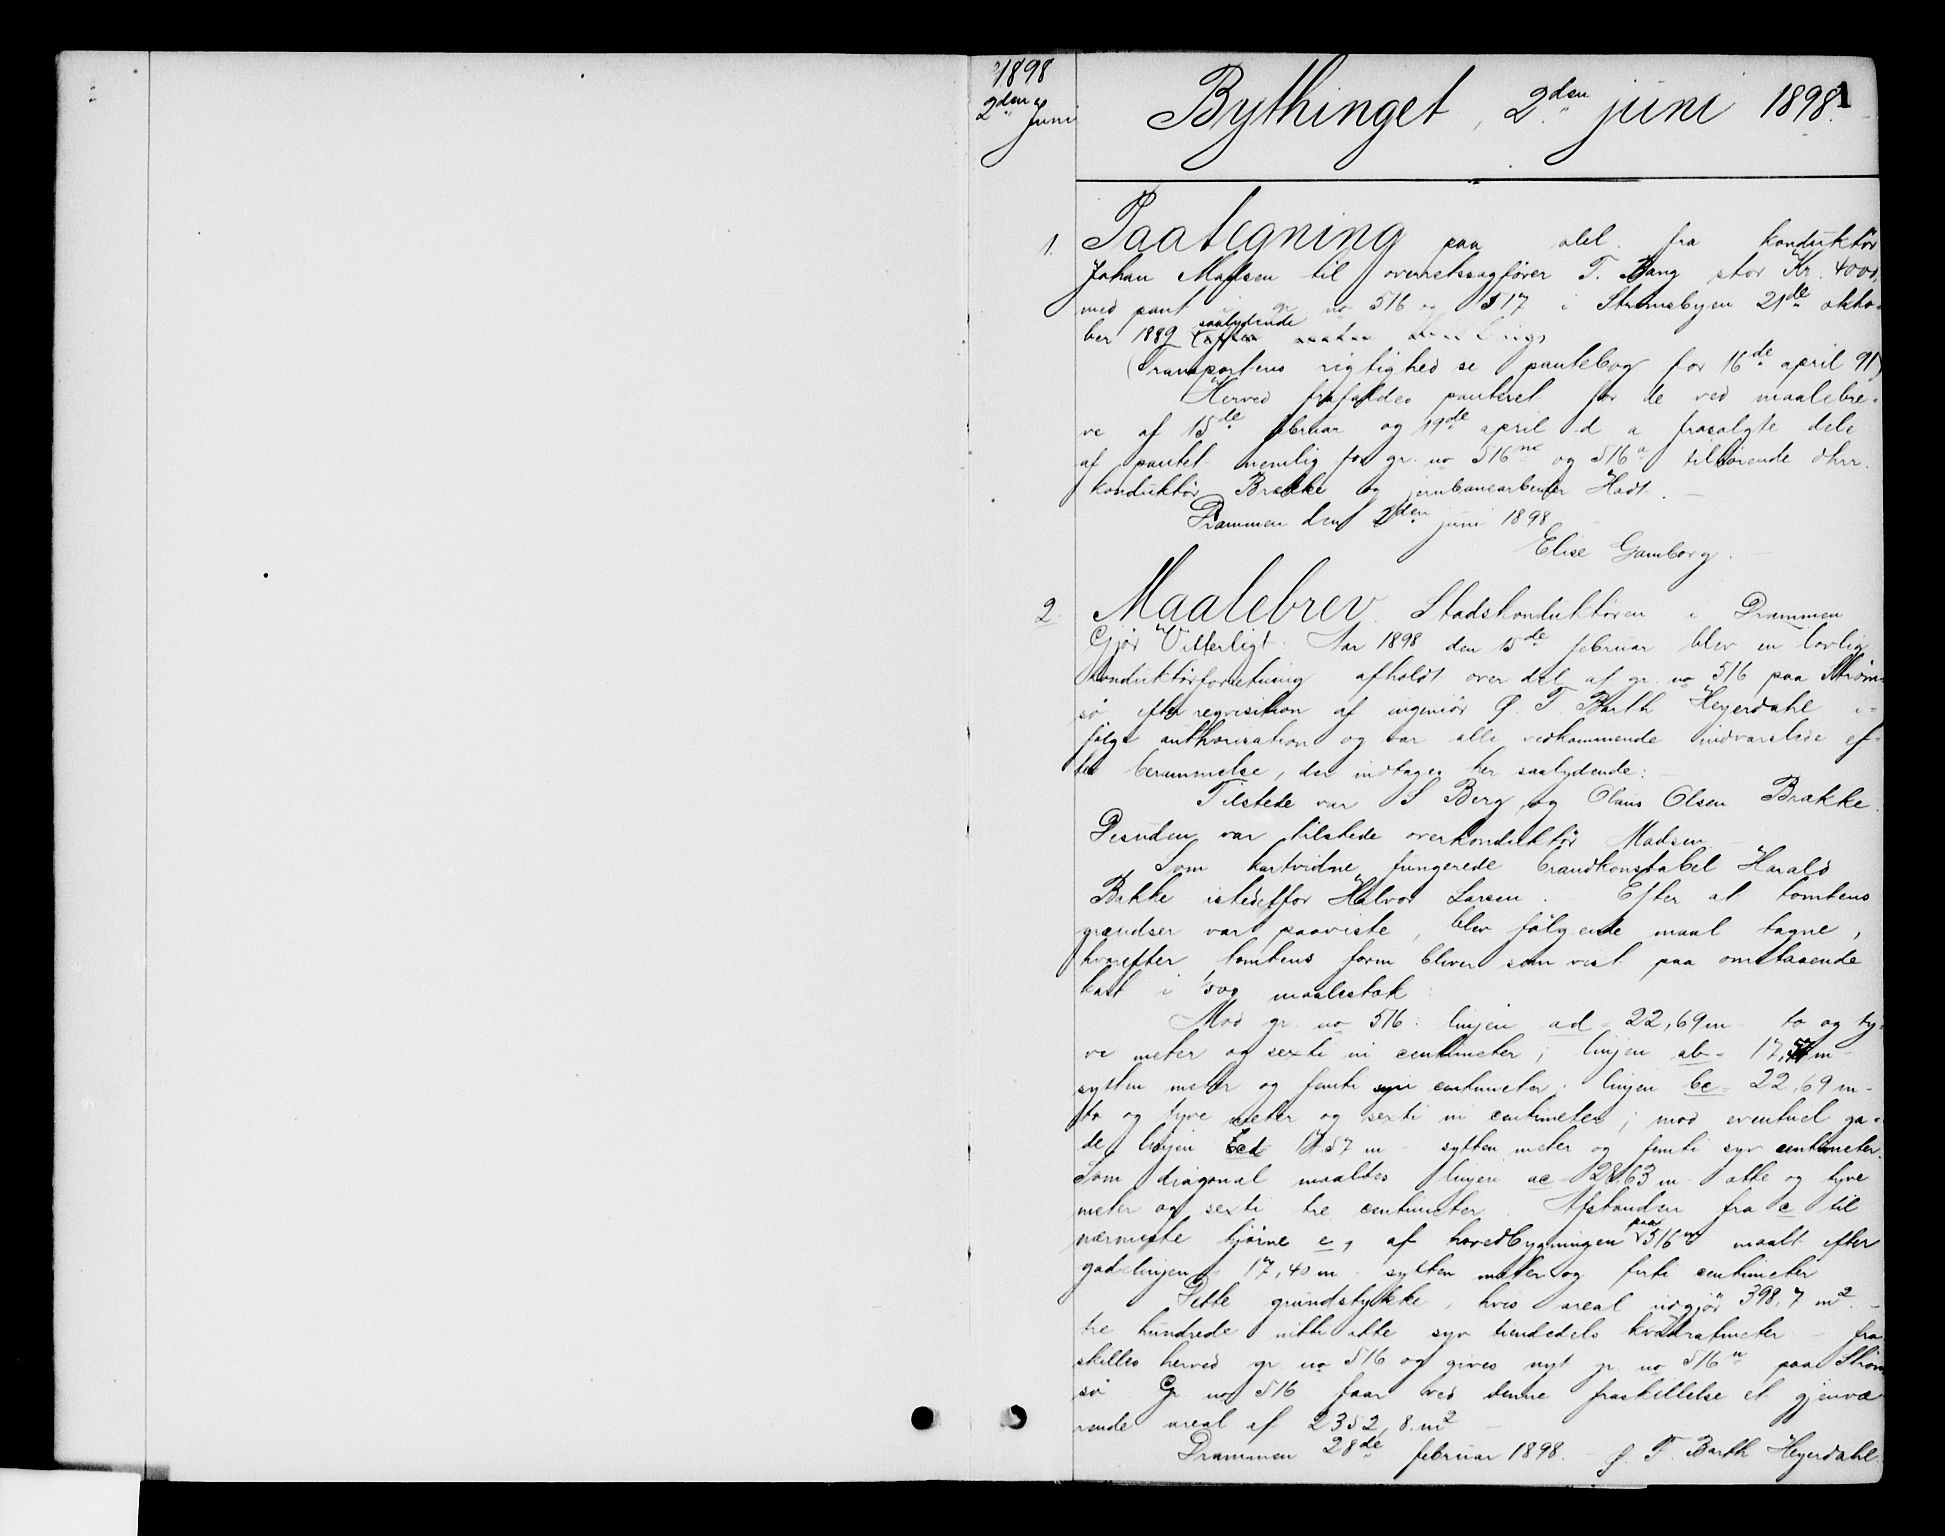 1898
2den juni
Bythinget, 2den juni 1898.
1
1. Paategning paa obl. fra konduktör
Johan Madsen til overretssagfører T. Bang stor Kr. 4000,
med pant i gr. no 516 og 517 i Strømsbyen 21de okto-
ber 1889 saalydende
(Transportens rigtighed se pantebog for 16de april 91)
Herved frafaldes panteret for de ved maalebre-
ve af 15de februar og 19de april d. a. frasolgte dele
af pantet nemlig for gr. no 516m og 516n tilhørende dhrr.
konduktör Brække og jernbanearbeider Hadt.
Drammen den 2den juni 1898
Elise Gamborg.
2. Maalebrev. Stadskonduktören i Drammen
Gjör Vitterligt: Aar 1898 den 15de februar blev en lovlig
konduktörforretning afholdt over del af gr. no 516 paa Ström-
sö efter reqvisition af ingeniör G. F. Barth Heyerdahl i-
fölge authorisation og var alle vedkommende indvarslede ef-
ter berammelse, der indtages her saalydende:
Tilstede var S. Berg og Olaus Olsen Brække.
Desuden var tilstede overkonduktör Madsen.
Som kartvidne fungerede brandkonstabel Harald
Bakke istedetfor Halvor Larsen. Efter at tomtens
grændser var paaviste, blev fölgende maal tagne,
hvorefter tomtens form bliver som vist paa omstaaende
kart i 1/500 maalestok:
Mod gr. no 516: linjen ad = 22,69 m - to og ty-
ve meter og sexti ni centimeter; linjen ab = 17,57 m -
sytten meter og femti syv centimeter; linjen bc = 22,69 m -
to og tyve meter og sexti ni centimeter; mod eventuel ga-
de linjen cd 17.57 m - sytten meter og femti syv centimeter.
Som diagonal maaltes linjen ac 28.63 m - otte og tyve
meter og sexti tre centimeter. Afstanden fra c til
nærmeste hjörne e, af hovedbygningen paa 516m maalt efter
gadelinjen = 17,40 m - sytten meter og firti centimeter
Dette grundstykke, hvis areal udgjör 398,7 m2. -
tre hundrede nitti otte syv tiendedels kvadratmeter - fra-
skilles herved gr. no 516 og gives nyt gr. no 516n paa Ström-
sö. Gr. no 516 faar ved denne fraskillelse et gjenvæ
rende areal af 2352,8 m2 -
Drammen 28de februar 1898. - G. F. Barth Heyerdahl.